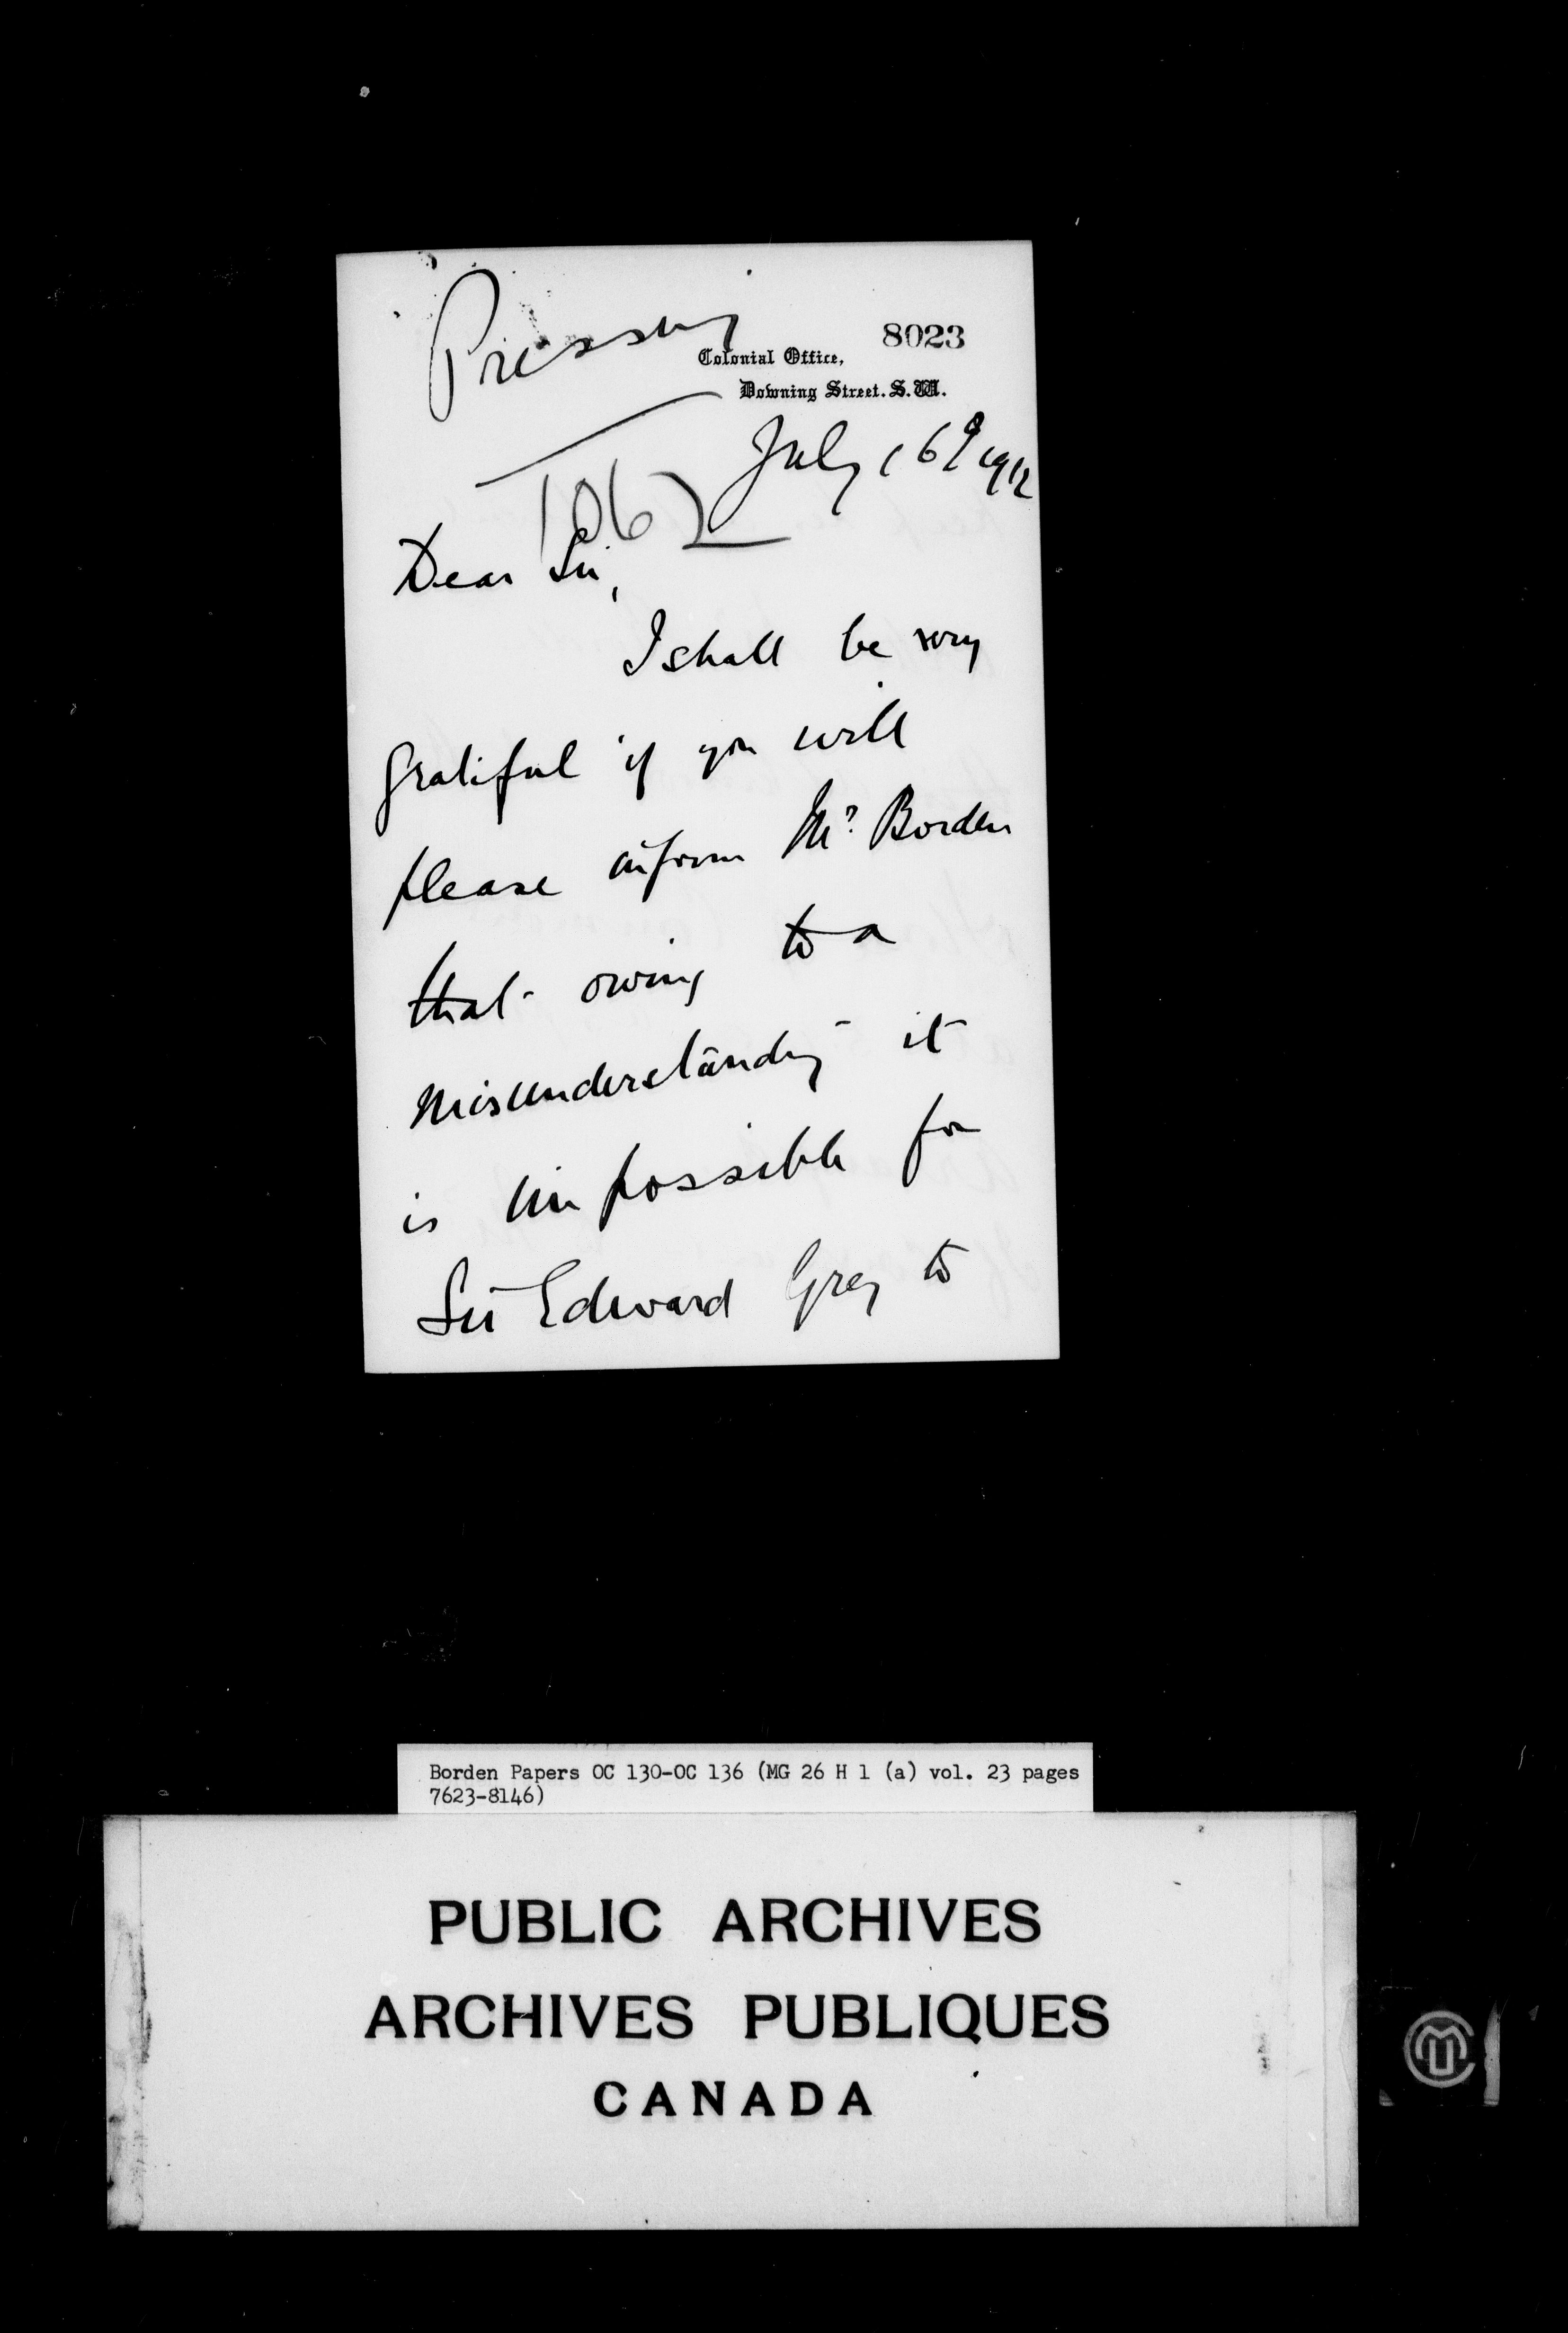 Pressing
8023
Colonial Office,
Downing Street. S.W.
July 16th 1912
Dear Sir,
I shall be very
grateful if you will
please inform Mr. Borden
that owing to a
misunderstanding it
is impossible for
Sir Edward Grey to
Borden Papers OC 130-OC 136 (MG 26 H 1 (a) vol. 23 pages
7623-8146)
PUBLIC ARCHIVES
ARCHIVES PUBLIQUES
CANADA